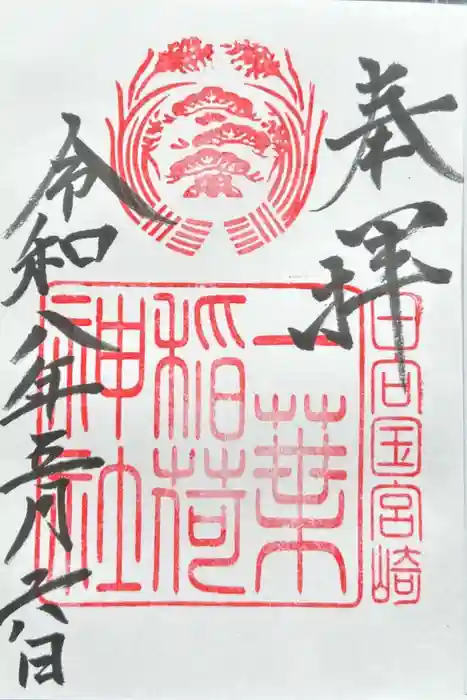 奉拝
日向国宮崎
一葉
稲荷
神社
令和八年五月六日